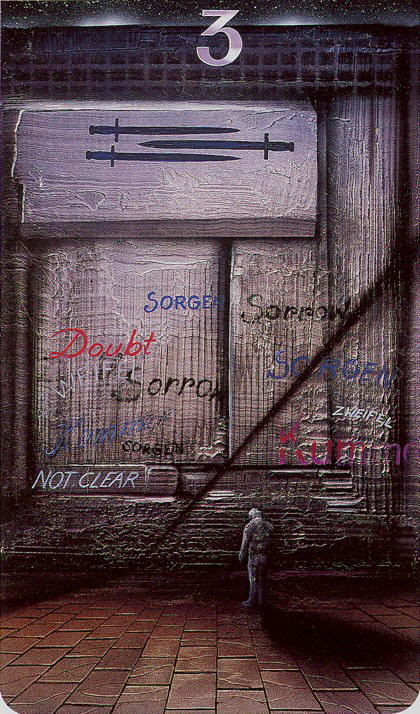 3
SORGEN
Sorrow
Doubt
SORGEN
ZWEIFEL
Sorrow
ZWEIFEL
Kummer
SORGEN
Kumme
NOT CLEAR